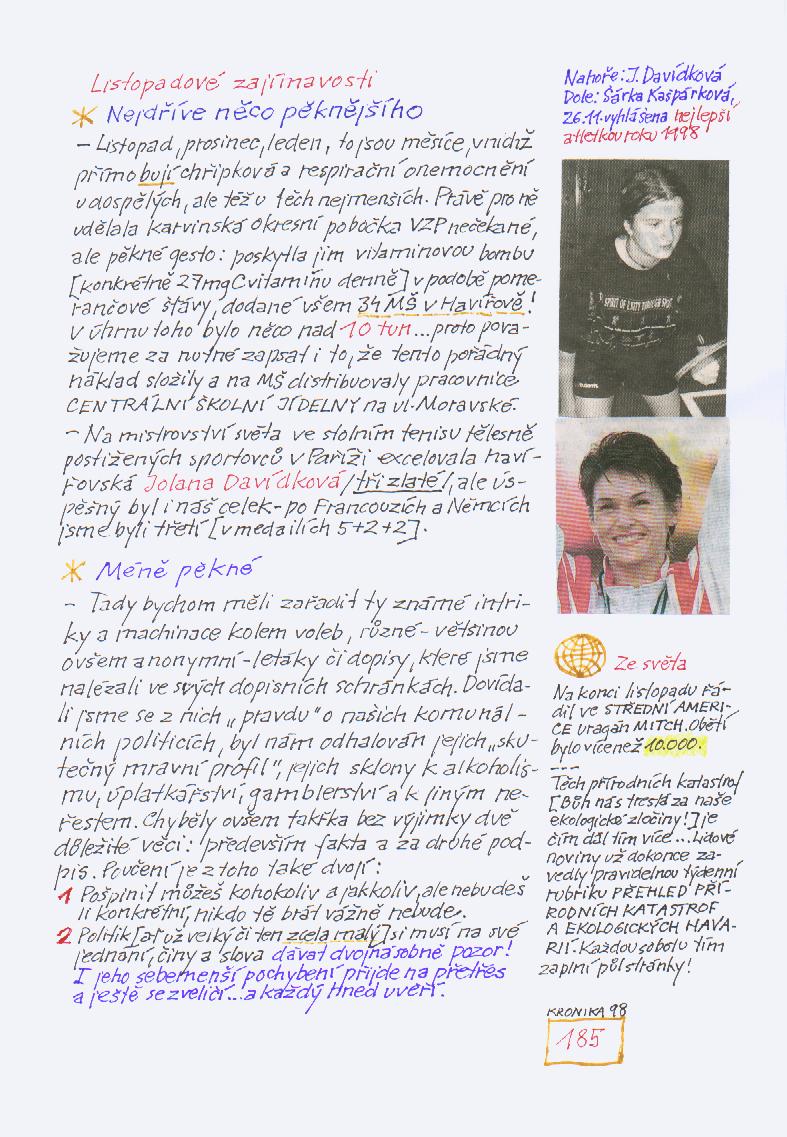 Listopadové zajímavosti
Nejdříve něco pěknějšího
– Listopad, prosinec, leden, to jsou měsíce, v nichž
přímo bují chřipková a respirační onemocnění
u dospělých, ale též u těch nejmenších. Právě pro ně
udělala karvinská okresní pobočka VZP nečekané,
ale pěkné gesto: poskytla jim vitaminovou bombu
[konkrétně 27mg C vitaminu denně] v podobě pome-
rančové šťávy, dodané všem 34 MŠ v Havířově!
V úhrnu toho bylo něco nad 10 tun... proto pova-
žujeme za nutné zapsat i to, že tento pořádný
náklad složily a na MŠ distribuovaly pracovnice
CENTRÁLNÍ ŠKOLNÍ JÍDELNY na ul. Moravské.
– Na mistrovství světa ve stolním tenisu tělesně
postižených sportovců v Paříži excelovala haví-
řovská Jolana Davídková /tři zlaté/, ale ús-
pěšný byl i náš celek - po Francouzích a Němcích
jsme byli třetí [v medailích 5+2+2].
Méně pěkné
– Tady bychom měli zařadit ty známé intri-
ky a machinace kolem voleb, různé - většinou
ovšem anonymní - letáky či dopisy, které jsme
nalézali ve svých dopisních schránkách. Dovída-
li jsme se z nich „pravdu" o našich komunál-
ních politicích, byl nám odhalován jejich „sku-
tečný mravní profil", jejich sklony k alkoholis-
mu, úplatkářství, gamblerství a k jiným ne-
řestem. Chyběly ovšem takřka bez výjimky dvě
důležité věci: především fakta a za druhé pod-
pis. Poučení je z toho také dvojí:
1 Pošpinit můžeš kohokoliv a jakkoliv, ale nebudeš
li konkrétní, nikdo tě brát vážně nebude.
2 Politik [ať už velký či ten zcela malý] si musí na své
jednání, činy a slova dávat dvojnásobně pozor!
I jeho sebemenší pochybení přijde na přetřes
a ještě se zveličí... a každý hned uvěří.
Nahoře: J. Davídková
Dole: Šárka Kašpárková,
26.11. vyhlášena nejlepší
atletkou roku 1998
SPIRIT OF UNITY THROUGH SPORT
Ze světa
Na konci listopadu řá-
dil ve STŘEDNÍ AMERI-
CE uragán MITCH. Obětí
bylo více než 10.000.
---
Těch přírodních katastrof
[Bůh nás trestá za naše
ekologické zločiny!] je
čím dál tím více... Lidové
noviny už dokonce za-
vedly pravidelnou týdenní
rubriku PŘEHLED PŘÍ-
RODNÍCH KATASTROF
A EKOLOGICKÝCH HAVÁ-
RIÍ. Každou sobotu tím
zaplní půl stránky!
KRONIKA 98
185